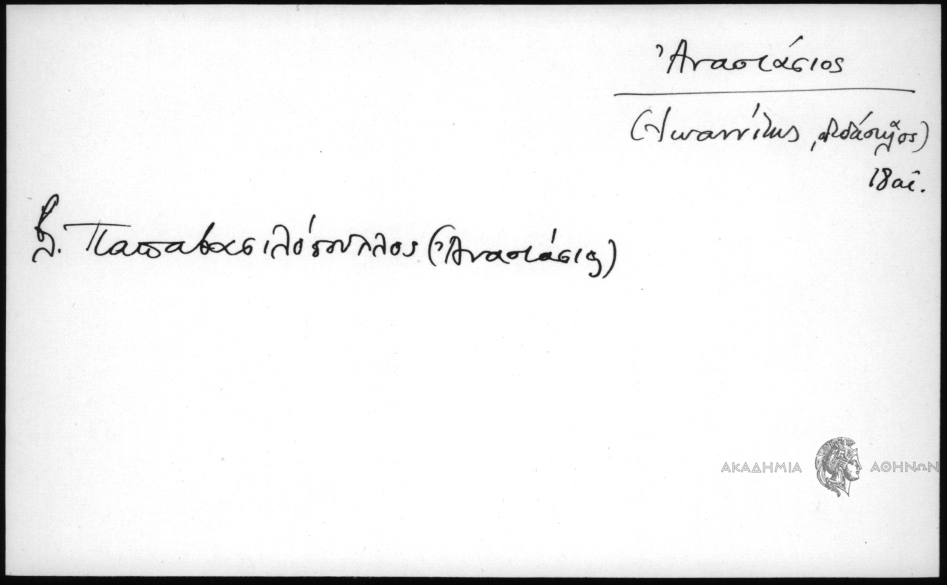 Ἀναστάσιος
(Ἰωαννίτης, διδάσκαλος)
18 αἰ.
βλ. Παπαβασιλόπουλος (Ἀναστάσιος)
ΑΚΑΔΗΜΙΑ ΑΘΗΝΩΝ